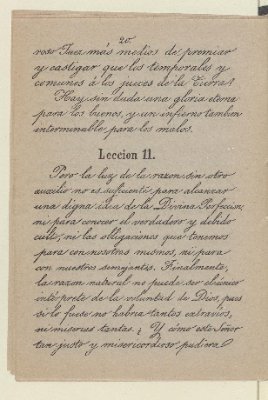 20
roso Juez más medios de premiar
y castigar que los temporales y
comunes á los jueces de la Tierra?
Hay sin duda una gloria eterna
para los buenos, y un infierno tambien
interminable para los malos.
Leccion 11.
Pero la luz de la razon sin otro
auxilio no es suficiente para alcanzar
una digna idea de la Divina Perfeccion;
ni para conocer el verdadero y debido
culto, ni las obligaciones que tenemos
para con nosotros mismos, ni para
con nuestros semejantes. Finalmente,
la razon natural no puede ser el único
intérprete de la voluntad de Dios, pues
si lo fuese no habria tantos extravios,
ni miserias tantas. ¿Y cómo este Señor
tan justo y misericordioso, pudiera